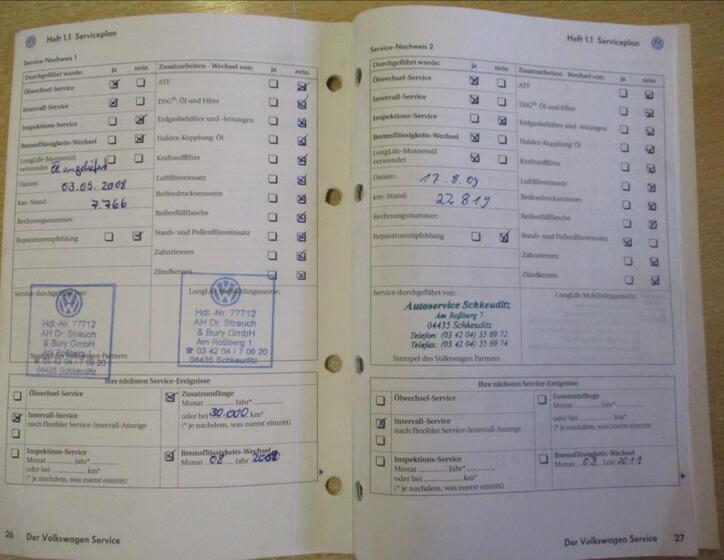 Heft 1.1 Serviceplan
Service-Nachweis 1
Durchgeführt wurde: ja nein
Ölwechsel-Service
Intervall-Service
Inspektions-Service
Bremsflüssigkeits-Wechsel
LongLife-Motorenöl
verwendet Öl angeliefert
Datum: 03.05.2008
km-Stand: 7.766
Rechnungsnummer:
Reparaturempfehlung
Zusatzarbeiten - Wechsel von: ja nein
ATF
DSG®: Öl und Filter
Erdgasbehälter und -leitungen
Haldex-Kupplung: Öl
Kraftstofffilter
Luftfiltereinsatz
Reifendrucksensoren
Reifenfüllflasche
Staub- und Pollenfiltereinsatz
Zahnriemen
Zündkerzen
Service durchgeführt von:
Hdl.-Nr. 77712
AH Dr. Strauch
& Bury GmbH
Am Roßberg 1
☎ 03 42 04 / 7 09 20
04435 Schkeuditz
Stempel des Volkswagen Partners
LongLife Mobilitätsgarantie:
Hdl.-Nr. 77712
AH Dr. Strauch
& Bury GmbH
Am Roßberg 1
☎ 03 42 04 / 7 09 20
04435 Schkeuditz
Ihre nächsten Service-Ereignisse
Ölwechsel-Service
Intervall-Service
nach flexibler Service-Intervall-Anzeige
Inspektions-Service
Monat ........ Jahr* ........
oder bei ........ km*
(* je nachdem, was zuerst eintritt)
Zusatzumfänge
Monat ........ Jahr* ........
oder bei 30.000 km*
(* je nachdem, was zuerst eintritt)
Bremsflüssigkeits-Wechsel
Monat 08 Jahr
26 Der Volkswagen Service
Heft 1.1 Serviceplan
Service-Nachweis 2
Durchgeführt wurde: ja nein
Ölwechsel-Service
Intervall-Service
Inspektions-Service
Bremsflüssigkeits-Wechsel
LongLife-Motorenöl
verwendet
Datum: 17.8.09
km-Stand: 22 819
Rechnungsnummer:
Reparaturempfehlung
Zusatzarbeiten - Wechsel von: ja nein
ATF
DSG®: Öl und Filter
Erdgasbehälter und -leitungen
Haldex-Kupplung: Öl
Kraftstofffilter
Luftfiltereinsatz
Reifendrucksensoren
Reifenfüllflasche
Staub- und Pollenfiltereinsatz
Zahnriemen
Zündkerzen
Service durchgeführt von:
Autoservice Schkeuditz
Am Roßberg 7
04435 Schkeuditz
Telefon: (03 42 04) 35 69 72
Telefax: (03 42 04) 35 69 74
Stempel des Volkswagen Partners
LongLife Mobilitätsgarantie:
Ihre nächsten Service-Ereignisse
Ölwechsel-Service
Intervall-Service
nach flexibler Service-Intervall-Anzeige
Inspektions-Service
Monat ........ Jahr* ........
oder bei ........ km*
(* je nachdem, was zuerst eintritt)
Zusatzumfänge
Monat ........ Jahr* ........
oder bei ........ km*
(* je nachdem, was zuerst eintritt)
Bremsflüssigkeits-Wechsel
Monat 08 Jahr 2011
Der Volkswagen Service 27